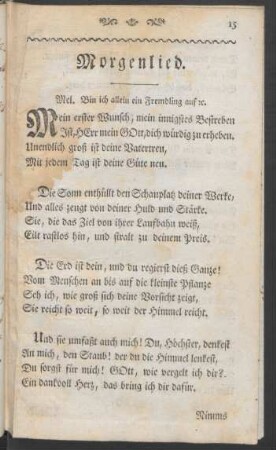 15
Morgenlied.
Mel. Bin ich allein ein Fremdling auf ꝛc.
Mein erster Wunsch, mein innigstes Bestreben
Ist, HErr mein GOtt, dich würdig zu erheben.
Unendlich groß ist deine Vatertreu,
Mit jedem Tag ist deine Güte neu.
Die Sonn enthüllt den Schauplatz deiner Werke,
Und alles zeugt von deiner Huld und Stärke.
Sie, die das Ziel von ihrer Laufbahn weiß,
Eilt rastlos hin, und stralt zu deinem Preis.
Die Erd ist dein, und du regierst dieß Ganze!
Vom Menschen an bis auf die kleinste Pflanze
Seh ich, wie groß sich deine Vorsicht zeigt,
Sie reicht so weit, so weit der Himmel reicht.
Und sie umfaßt auch mich! Du, Höchster, denkest
An mich, den Staub! der du die Himmel lenkest,
Du sorgst für mich! GOtt, wie vergelt ich dirs?
Ein dankvoll Hertz, das bring ich dir dafür.
Nimms